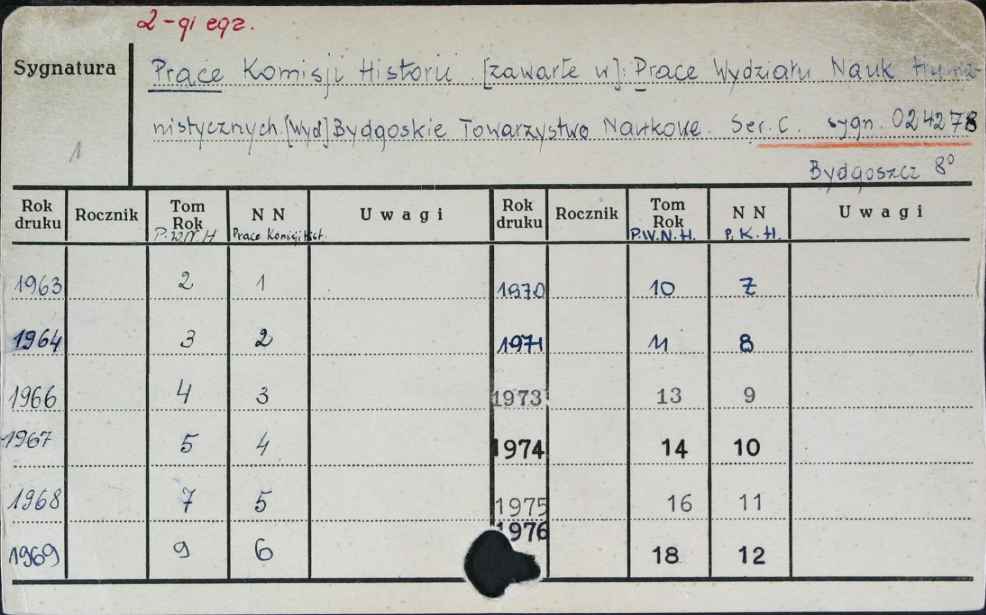 2-gi egz.
Sygnatura
Prace Komisji Historii [zawarte w]: Prace Wydziału Nauk Huma-
nistycznych. [Wyd] Bydgoskie Towarzystwo Naukowe. Ser. C. sygn. 024278
1
Bydgoszcz 8°
Rok druku Rocznik Tom Rok P.W.N.H N N Prace Komisji Hist. Uwagi Rok druku Rocznik Tom Rok P.W.N.H. N N P.K.H. Uwagi
1963 2 1 1970 10 7
1964 3 2 1971 11 8
1966 4 3 1973 13 9
1967 5 4 1974 14 10
1968 7 5 1975 16 11
1969 9 6 1976 18 12